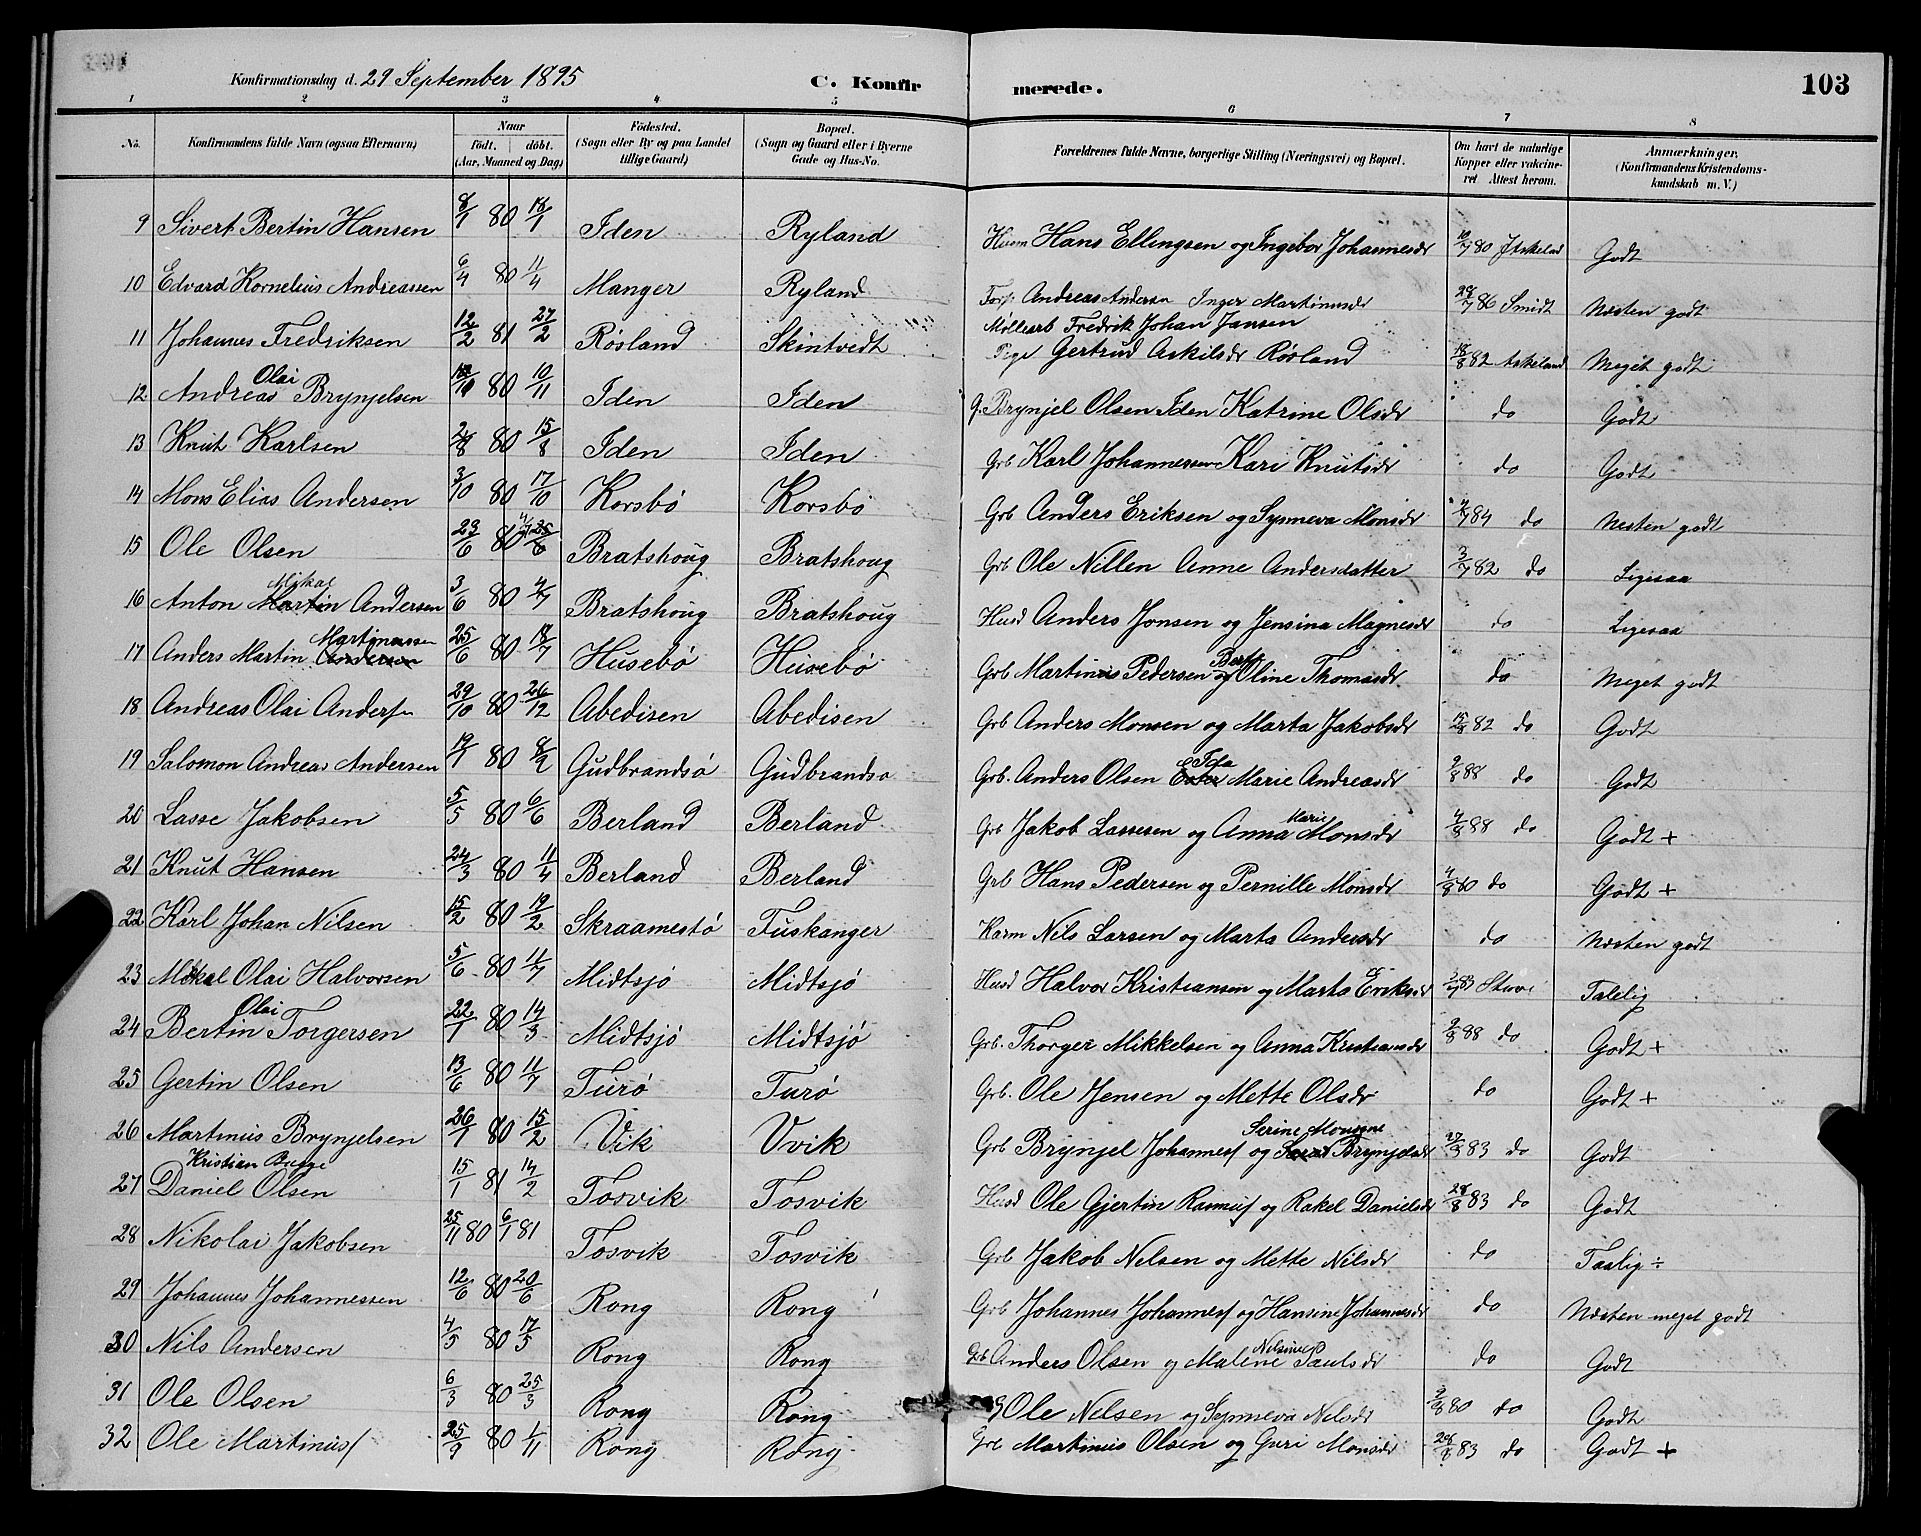 Konfirmationsdag d. 29 September 1895 C. Konfirmerede. 103
1 2 3 4 5 6 7 8
No. Konfirmandens fulde Navn (ogsaa Efternavn) Naar født. døbt. (Aar, Maaned og Dag) Fødested. (Sogn eller By og paa Landet tillige Gaard) Bopæl. (Sogn og Gaard eller i Byerne Gade og Hus-No. Forældrenes fulde Navne, borgerlige Stilling (Næringsvei) og Bopæl. Om havt de naturlige Kopper eller vakcineret Attest herom. Anmærkninger. (Konfirmandens Kristendomskundskab m. V.)
9 Sivert Bertin Hansen 8/1 80 18/1 Iden Ryland Huum Hans Ellingsen og Ingebor Johannesdr 80 Askeland Godt
10 Edvard Kornelius Andreassen 6/4 80 11/4 Manger Ryland Andreas Andersen Inger Martinusdr 28/7 86 Smidt Næsten godt
11 Johannes Fredriksen 12/2 81 27/2 Røsland Skintvedt Møllearb Fredrik Johan Jansen
Pige Gertrud Askilsdr Røsland 18/8 82 Askeland Meget godt
12 Andreas Olai Brynjelsen 80 10/11 Iden Iden g. Brynjel Olsen Iden Katrine Olsdr do Godt
13 Knut Karlsen 80 15/8 Iden Iden Grb Karl Johannessen Kari Knutsdr do Godt
14 Mons Elias Andersen 3/10 80 17/10 Korsbø Korsbø Grb Anders Eriksen og Synneva Monsdr 84 do Næsten godt
15 Ole Olsen 23/6 80 4/7 Bratshoug Bratshoug Grb Ole Nillen Anne Andersdatter 3/7 82 do Ligesaa
16 Anton Martin Mikal Andersen 3/6 80 4/7 Bratshoug Bratshoug Husd Anders Jonsen og Jensina Magnesdr do Ligesaa
17 Anders Martin Andersen Martinussen 25/6 80 18/7 Husebø Husebø Grb Martinus Pedersen og Berte Oline Thomasdr do Meget godt
18 Andreas Olai Anders 29/10 80 26/12 Abedisen Abedisen Grb Anders Monsen og Marta Jakobsdr 15/8 82 do Godt
19 Salomon Andreas Andersen 19/1 80 8/2 Gudbrandsø Gudbrandsø Grb. Anders Olsen Ida Marie Andreasdr 9/8 88 do Godt
20 Lasse Jakobsen 5/5 80 6/6 Berland Berland Grb Jakob Lassesen og Anna Marie Monsdr 4/8 88 do Godt +
21 Knut Hansen 24/3 80 11/4 Berland Berland Grb Hans Pedersen og Pernille Monsdr 4/8 80 do Godt +
22 Karl Johan Nilsen 15/2 80 19/2 Skraamestø Fuskanger Huum Nils Larsen og Marta Andersdr do Næsten godt
23 Mikal Olai Halvorsen 5/6 80 11/7 Midtsjø Midtsjø Husd Halvor Kristiansen og Marta Eriksdr Talelig
24 Bertin Olai Torgersen 22/1 80 14/3 Midtsjø Midtsjø Grb. Thorger Mikkelsen og Anna Kristiansdr 9/8 88 do Godt +
25 Gertin Olsen 13/6 80 11/7 Turø Turø Grb. Ole Jensen og Mette Olsdr do Godt +
26 Martinus Brynjelsen 26/1 80 15/2 Vik Vvik Grb Brynjel Johannes og Serine Monsine Brynjelsdr 83 do Godt
27 Daniel Kristian Bugge Olsen 15/1 81 14/2 Tosvik Tosvik Husd Ole Gjertin Rasmus og Rakel Danielsdr 28/8 83 do Godt
28 Nikolai Jakobsen 25/11 80 6/1 81 Tosvik Tosvik Grb Jakob Nelsen og Mette Nilsdr do Taalig ÷
29 Johannes Johannessen 12/6 80 20/6 Rong Rong Grb Johannes Johannes og Hansine Johannesdr do Næsten meget godt
30 Nils Andersen 4/5 80 17/5 Rong Rong Grb Anders Olsen og Malene Nelsine Paulsdr do Godt
31 Ole Olsen 6/3 80 25/3 Rong Rong G Ole Nelsen og Synneva Nilsdr 9/8 80 do Godt
32 Ole Martinus 25/9 80 1/11 Rong Rong Grb Martinus Olsen og Guri Monsdr 28/8 83 do Godt +